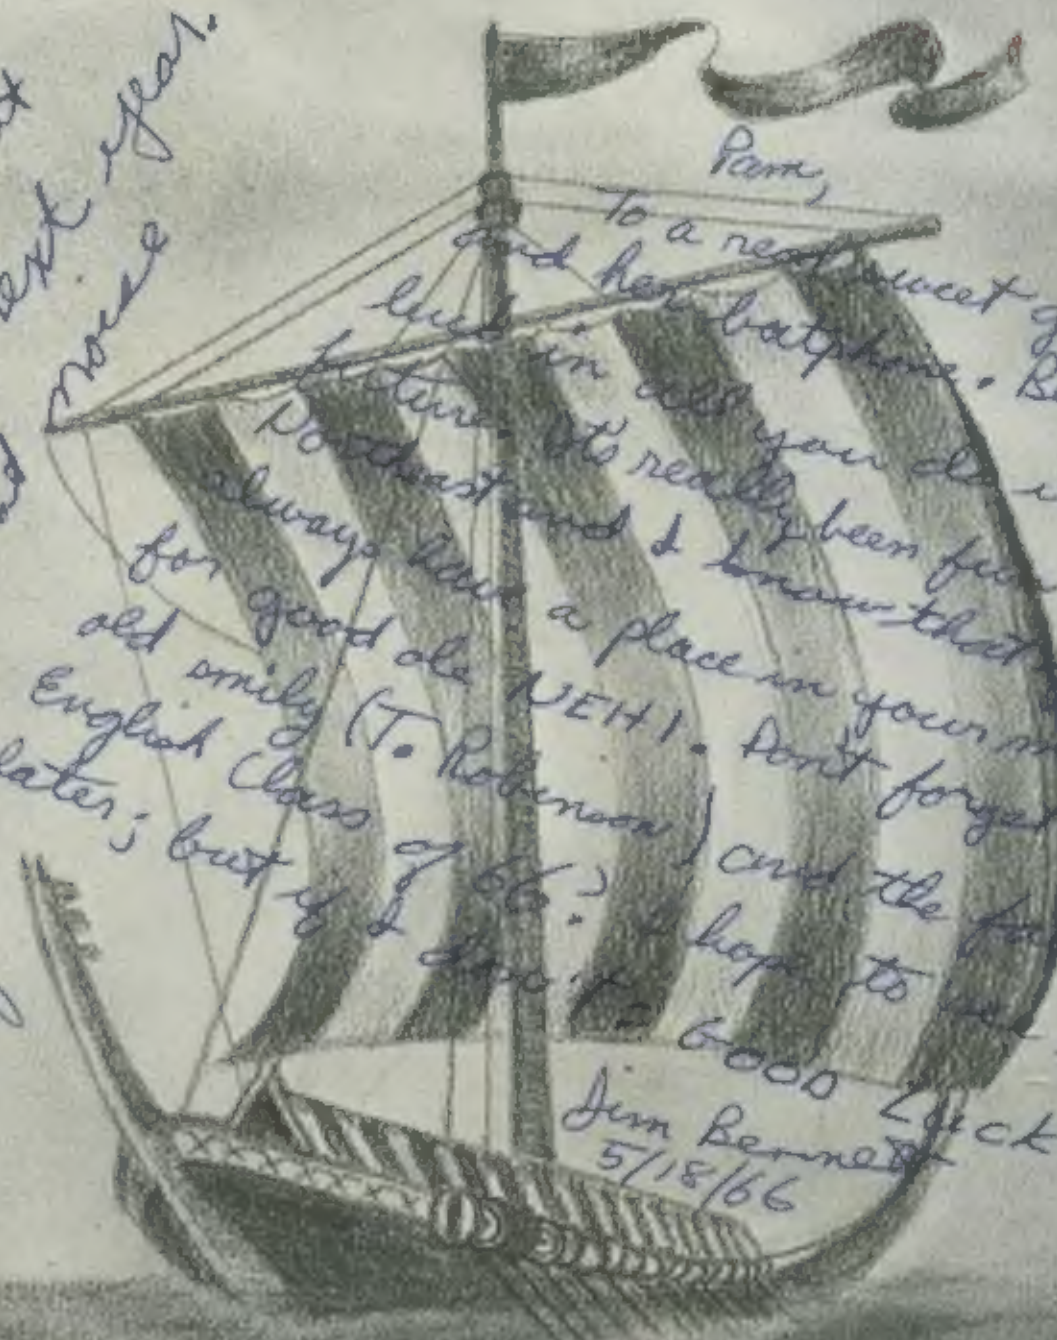 next year.
nouse
Pam,
To a real sweet
and her batphone. B
luck in all you do
future. It's really been fun
Northeast and I know that
always have a place in your m
for good ole NEHI. Dont forget
old smily (T. Robinson) and the
English Class of 66? I hope to
later; but if I don't = GOOD Luck
Jim Bennett
5/18/66